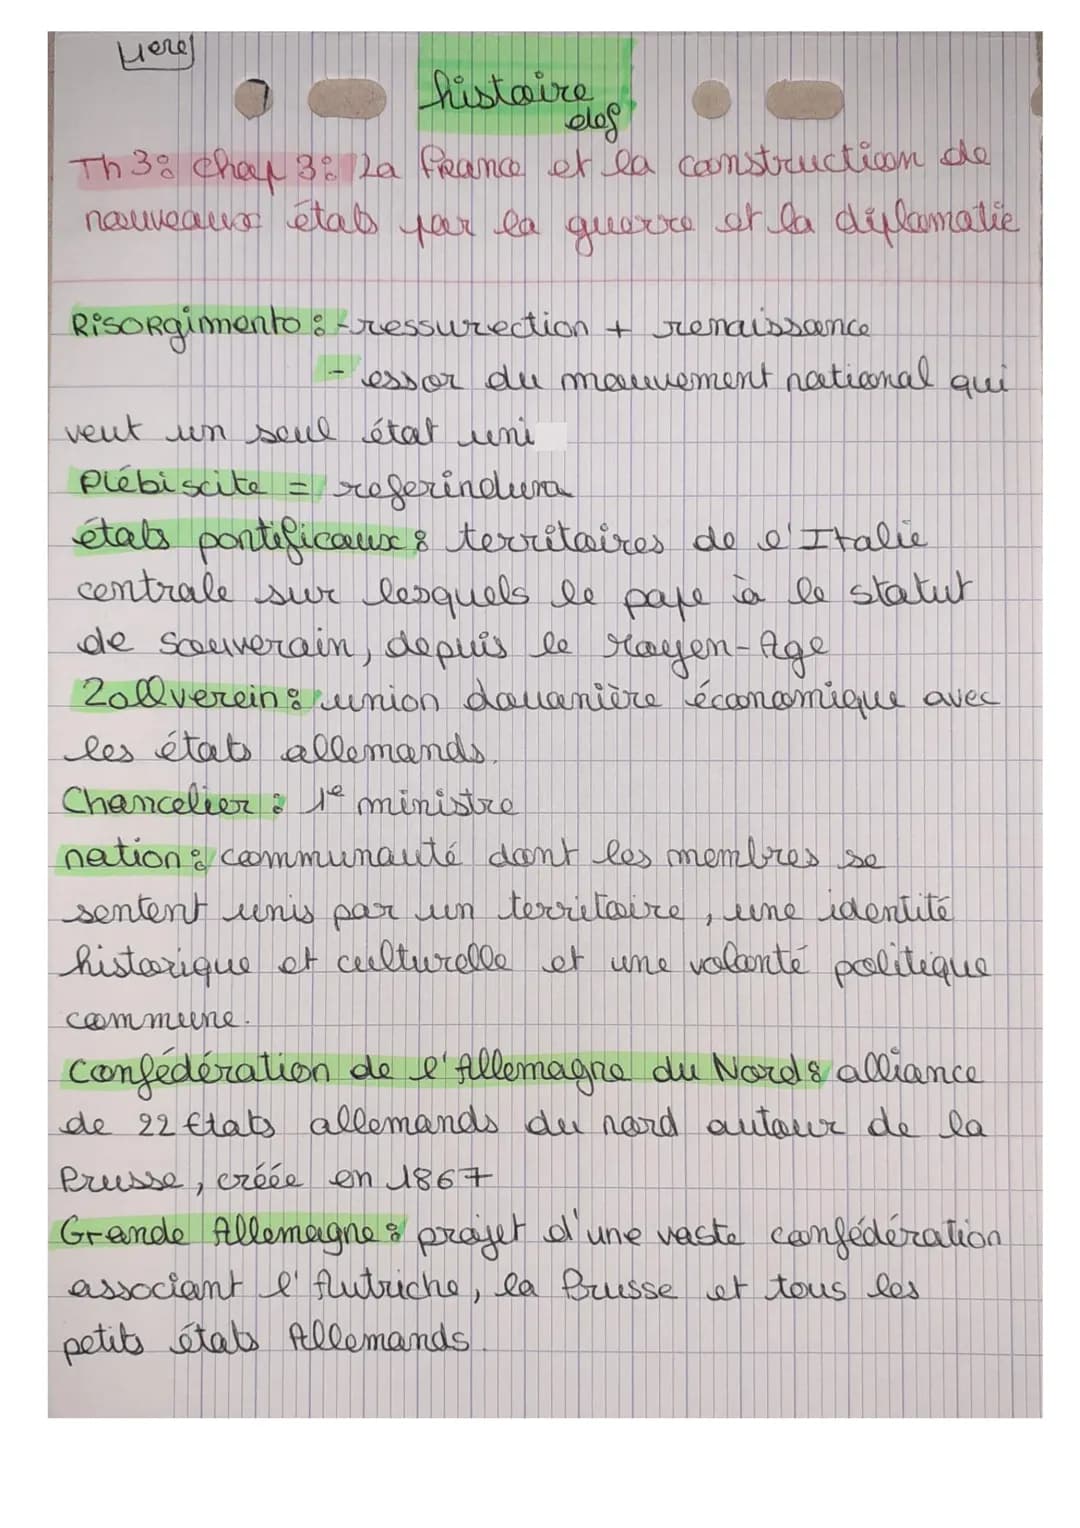 histoire
def
Th 3: Chap 3: La France et la construction de
nouveaux états par la guerre et la diplomatie
Risorgimento : - ressurection + renaissance
- essor du mouvement national qui
veut un seul état uni
Plébiscite = referindum
états pontificaux : territoires de l'Italie
centrale sur lesquels le pape à le statut
de souverain, depuis le Moyen-Age
Zollverein : union douanière économique avec
les états allemands.
Chancelier : 1e ministre
nation : communauté dont les membres se
sentent unis par un territoire, une identité
historique et culturelle et une volonté politique
commune.
Confédération de l'Allemagne du Nord : alliance
de 22 Etats allemands du nord autour de la
Prusse, créée en 1867
Grande Allemagne : projet d'une vaste confédération
associant l'Autriche, la Prusse et tous les
petits états Allemands.